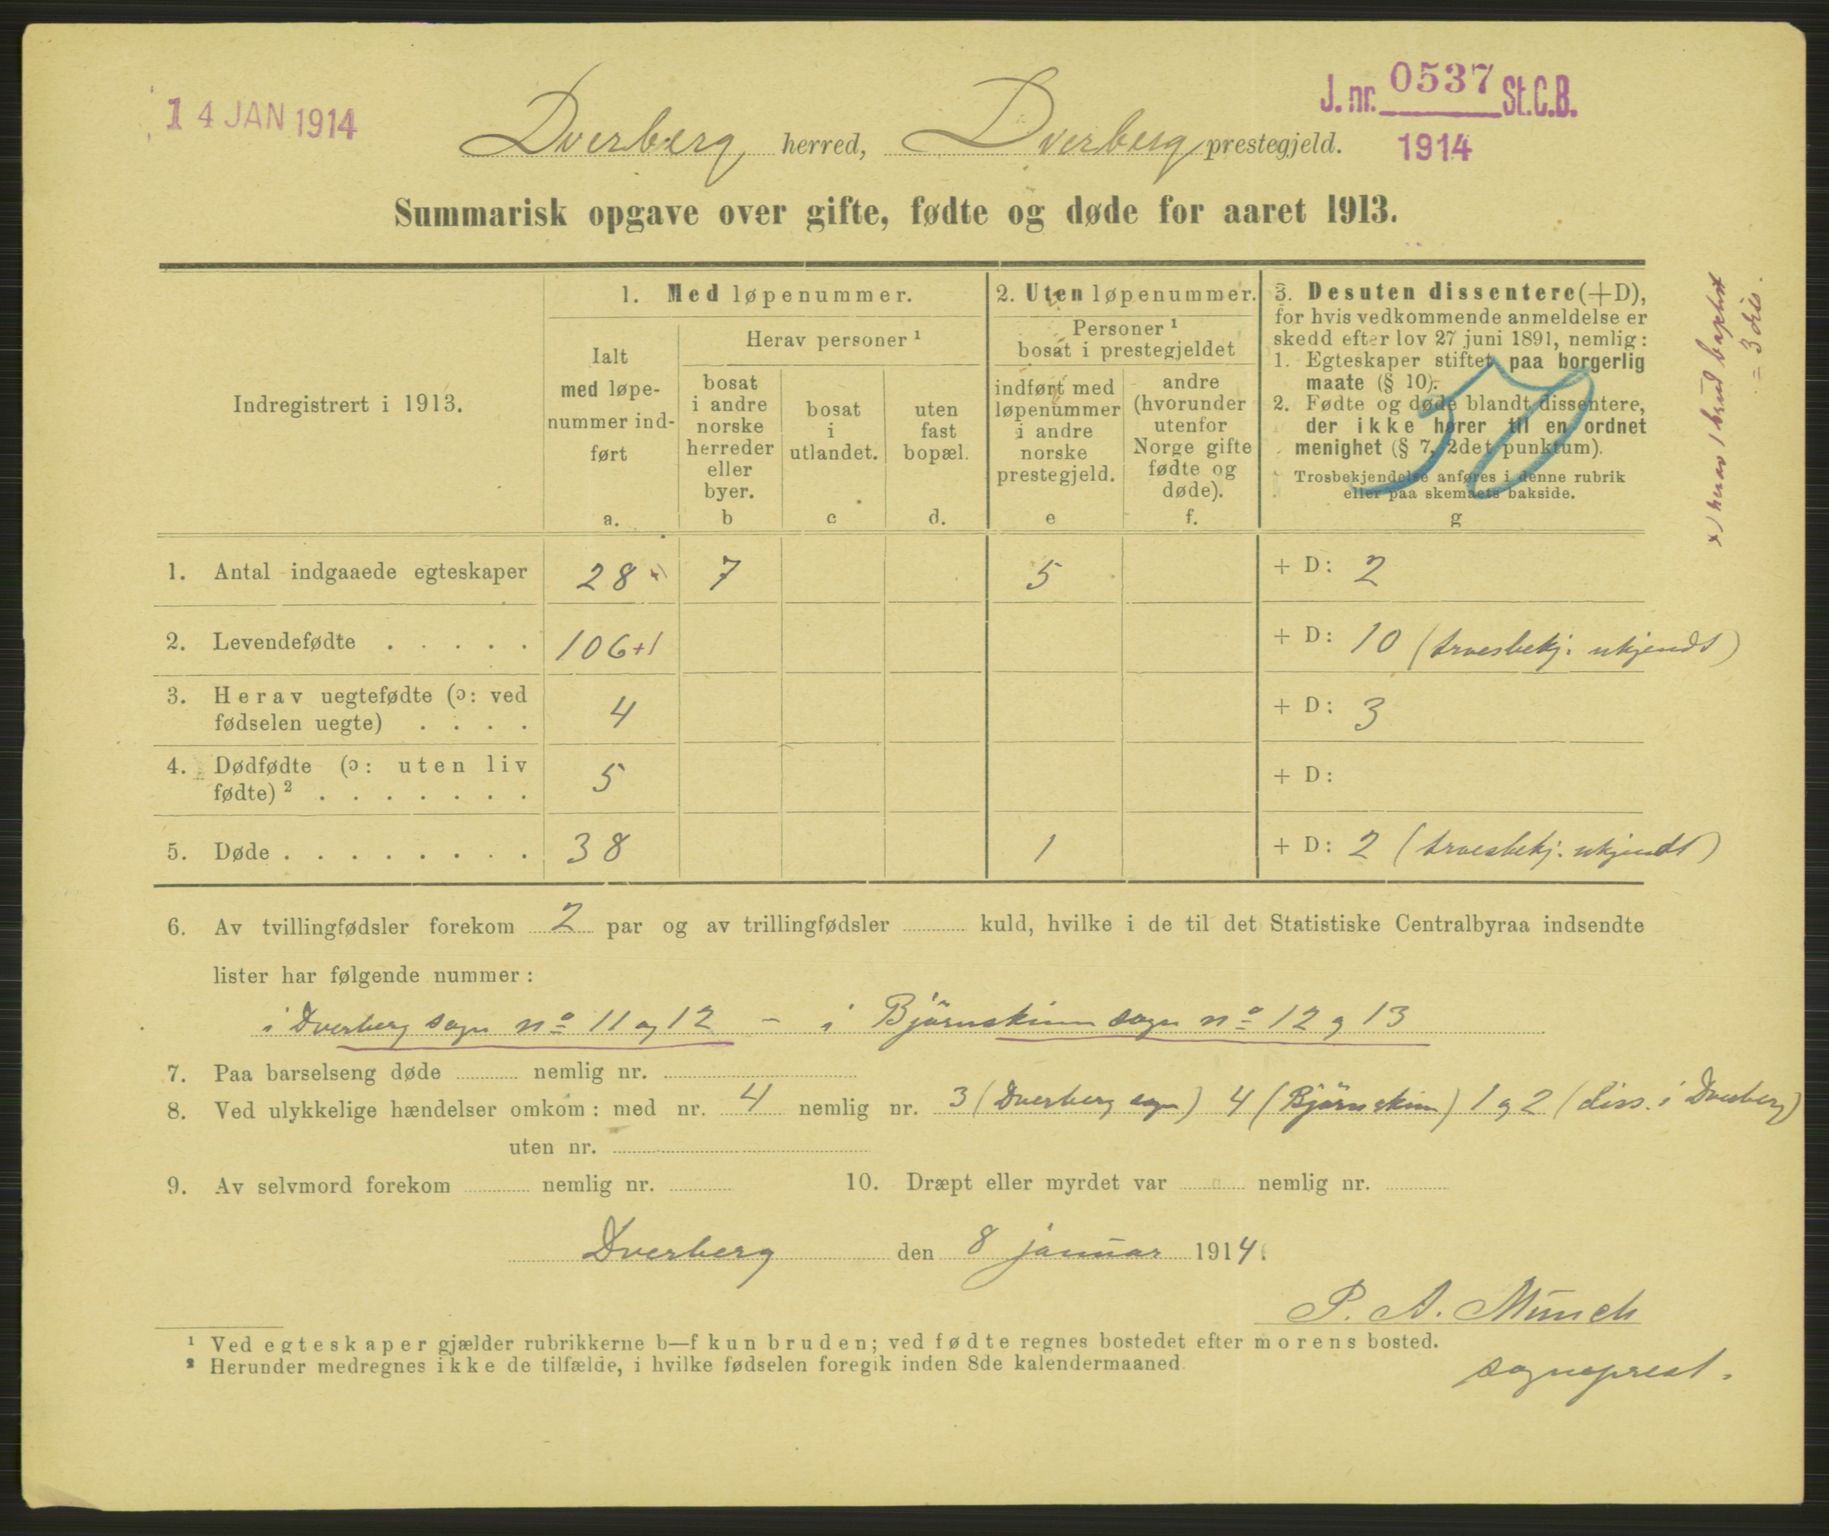 14 JAN 1914
J. nr. 0537 St.C.B.
1914
Dverberg herred, Dverberg prestegjeld.
Summarisk opgave over gifte, fødte og døde for aaret 1913.
Indregistrert i 1913.
1. Med løpenummer.
Ialt
med løpe-
nummer ind-
ført
a.
Herav personer ¹
bosat
i andre
norske
herreder
eller
byer.
b
bosat
i
utlandet.
c
uten
fast
bopæl.
d.
2. Uten løpenummer.
Personer ¹
bosat i prestegjeldet
indført med
løpenummer
i andre
norske
prestegjeld.
e
andre
(hvorunder
utenfor
Norge gifte
fødte og
døde).
f.
3. Desuten dissentere (+D),
for hvis vedkommende anmeldelse er
skedd efter lov 27 juni 1891, nemlig:
1. Egteskaper stiftet paa borgerlig
maate (§ 10).
2. Fødte og døde blandt dissentere,
der ikke hører til en ordnet
menighet (§ 7, 2det punktum).
Trosbekjendelse anføres i denne rubrik
eller paa skemaets bakside.
g
x) herav 1 brud baptist
= 3 dis.
1. Antal indgaaede egteskaper 28 x) 7 5 + D: 2
2. Levendefødte . . . . . 106+1 + D: 10 (troesbekj. ukjendt)
3. Herav uegtefødte (ɔ: ved
fødselen uegte) . . . . 4 + D: 3
4. Dødfødte (ɔ: uten liv
fødte) ² . . . . . . . 5 + D:
5. Døde . . . . . . . . . 38 1 + D: 2 (troesbekj. ukjendt)
6. Av tvillingfødsler forekom 2 par og av trillingfødsler ............ kuld, hvilke i de til det Statistiske Centralbyraa indsendte
lister har følgende nummer:
i Dverberg sogn nº 11 og 12 – i Björnskinn sogn nº 12 og 13
7. Paa barselseng døde ............ nemlig nr. ............
8. Ved ulykkelige hændelser omkom: med nr. 4 nemlig nr. 3 (Dverberg sogn) 4 (Björnskinn) 1 og 2 (diss. i Dverberg)
uten nr. ............
9. Av selvmord forekom ............ nemlig nr. ............ 10. Dræpt eller myrdet var ............ nemlig nr. ............
Dverberg den 8 januar 1914.
P. A. Munch
sogneprest.
¹ Ved egteskaper gjælder rubrikkerne b—f kun bruden; ved fødte regnes bostedet efter morens bosted.
² Herunder medregnes ikke de tilfælde, i hvilke fødselen foregik inden 8de kalendermaaned.